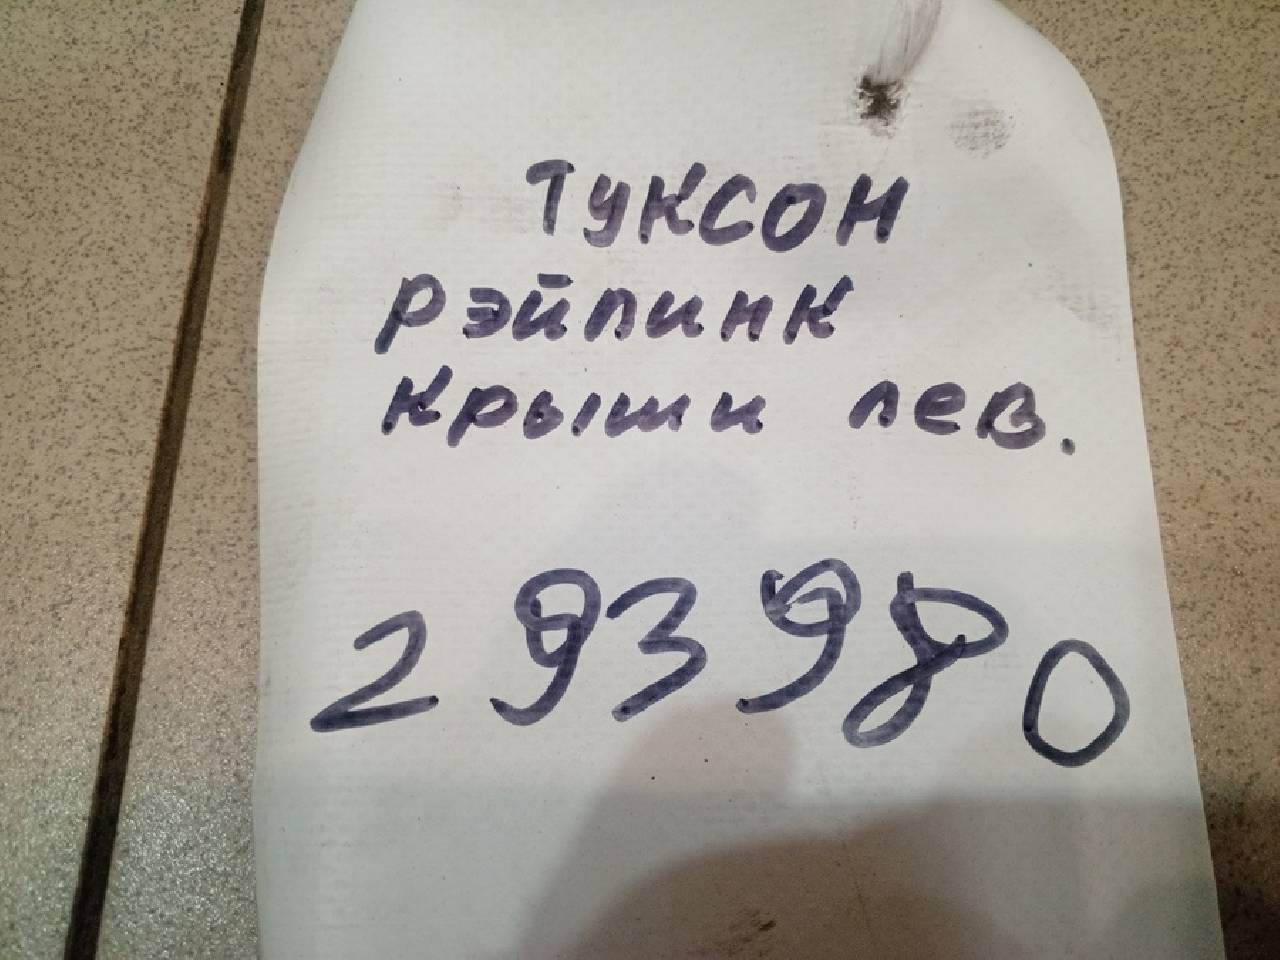 Туксон
Рэйлинк
Крыши лев.
293980